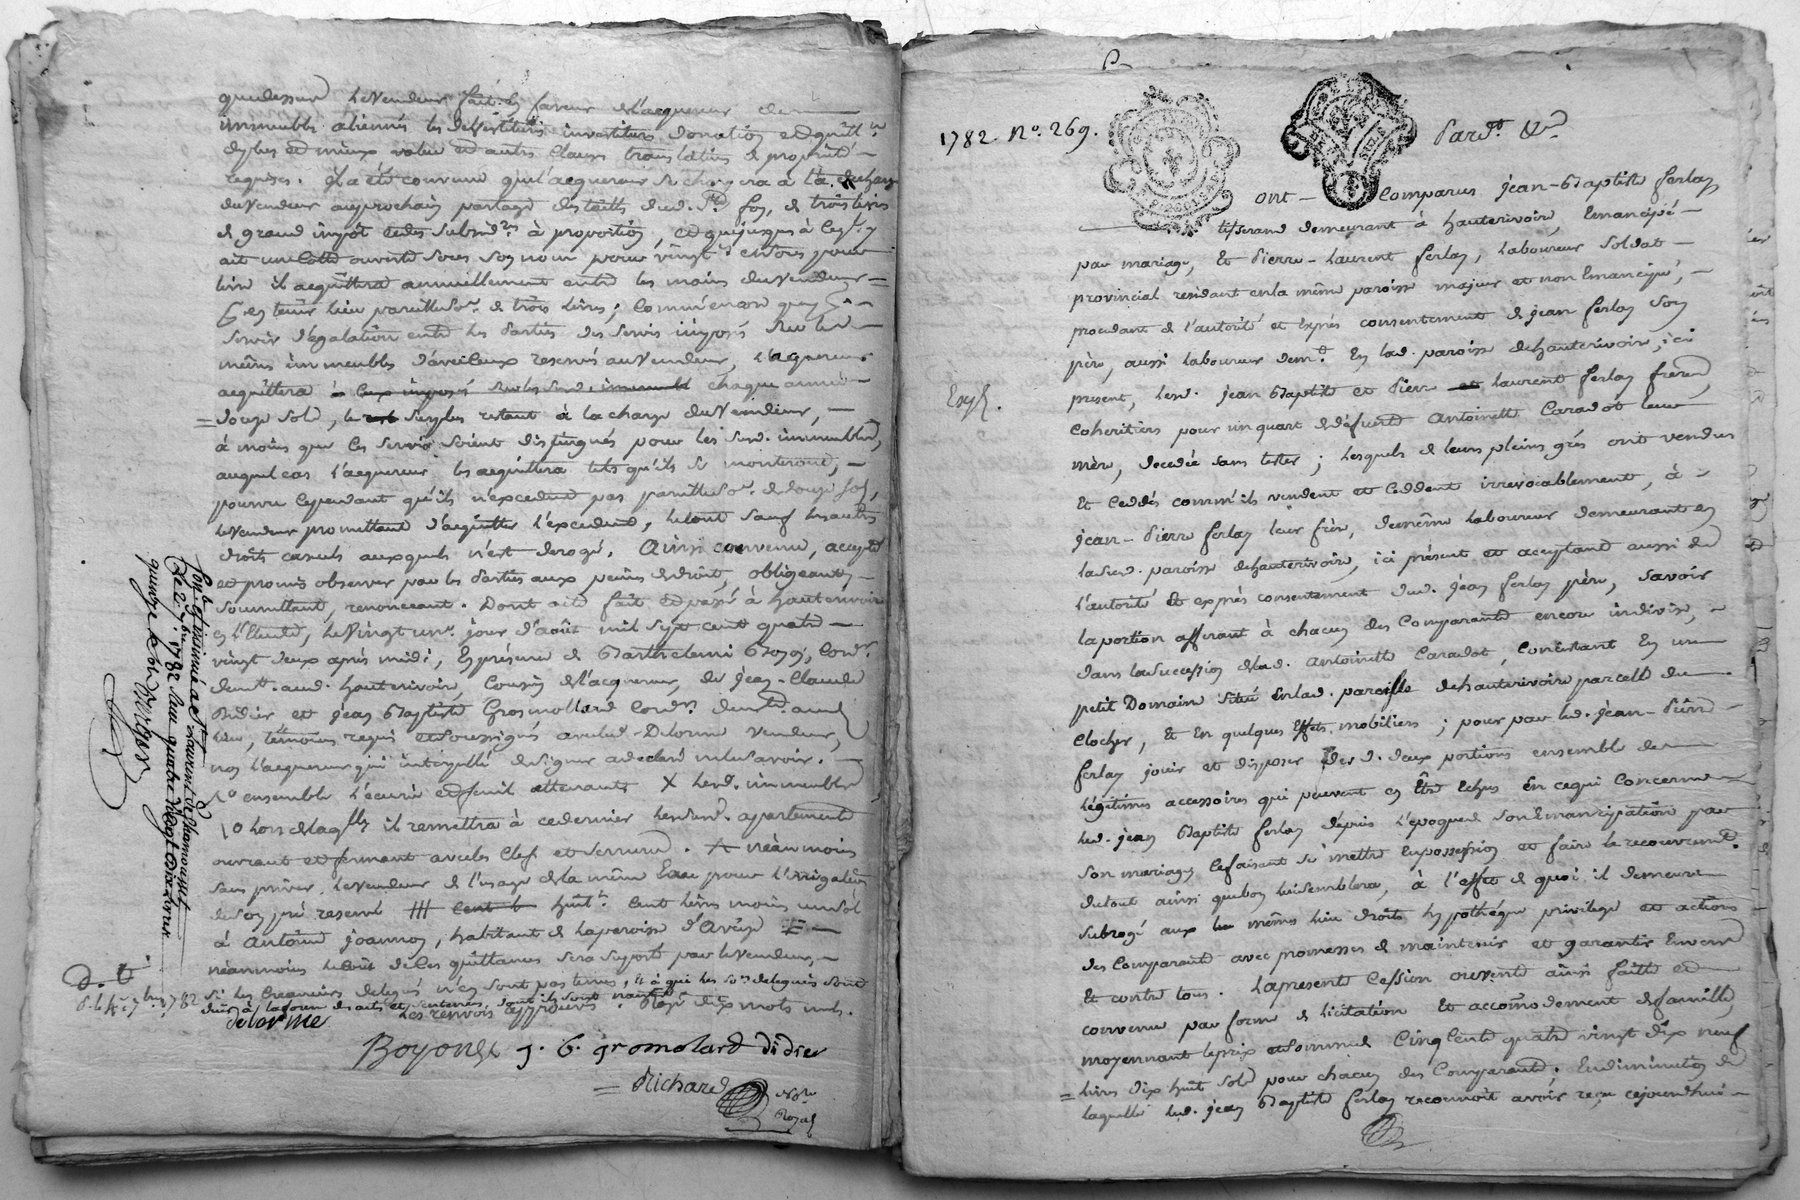 quedessus le vendeur fait en faveur de l'acquereur de
immeubles alienés les devestitures investitures donation et quitt.ce
de plus et mieux value et autres clauses translatives de proprieté
requises. il a été convenu que l'acquereur se chargera à la decharge
du vendeur au prochain partage des tailles dud. St. foy, de trois livres
de grand impôt et des subsid.res à proportion, et que jusques à ce qu'il y
ait une cotte ouverte sous son nom pour vingt
livre il acquittera annuellement entre les mains du vendeur
tenir lieu pareille so.e de trois livres; comme encore que
servir d'egalation entre les parties des servis imposés sur les
mêmes immeubles d'avec ceux reservés au vendeur, l'acquereur
acquittera à ceux imposés sur les susd. immeubles chaque année
= douze sols, le surplus restant à la charge du vendeur,
à moins que ces servis soient distingués pour les susd. immeubles,
auquel cas l'acquereur les acquittera tels qu'ils se monteront,
pourvu cependant qu'ils n'excedent pas pareille so.e de douze sols,
le vendeur promettant d'acquitter l'excedent, le tout sauf les autres
droits casuels auxquels n'est derogé. Ainsi convenu, accepté
et promis observer par les parties aux peines de droit, obligeants
soumettant, renonceant. Dont acte fait et passé à hauterivoire
en l'Etude, le vingt un.e jour d'août mil sept cent quatre
vingt deux après midi, En présence de Barthelemi Boyon, cord.r
demt. aud. hauterivoire, Cousin de l'acquereur, de jean-Claude
Didier et jean Baptiste Gromollard cord.rs demts. aud.
lieu, témoins requis et soussignés avec led. Delorme vendeur,
non l'acquereur qui interpellé de signer a declaré ne le savoir.
ensemble l'écurie et fenil attenants X lesd. immeubles
hors de laquelle il remettra à ce dernier les susd. appartements
ouvrant et fermant avec les clef et serrures. néanmoins
sans priver le vendeur de l'usage de la même Eau pour l'irrigation
de son pré reservé III cent huit.te cent livres moins un sol
à antoine joannon, habitant de la paroisse d'Aveize
néanmoins le coût de ces quittances sera suporté par le vendeur
si les creanciers delegués n'en sont pas tenus, et à qui les so.es deleguées sont
dues à la forme des actes et sentences dont ils sont nantis
les renvois approuvés. Rayé dix mots nuls.
delorme
Boyonet j. b. gromolard didier
= Richard
Not.re
Royal
Con.lé et insinué a St. Laurent de Chamousset
le 2 7bre 1782 Reçu quatre vingt dix livres
quinze sols
D. G.
7bre 1782
P
1782 No. 269.
Pardt. &a
ont Comparus jean-Baptiste ferlay
tisserand demeurant à hauterivoire, Emancipé
par mariage, Et Pierre-Laurent ferlay, laboureur soldat
provincial residant en la même paroisse majeur et non Emancipé,
procedant de l'autorité et exprès consentement de jean ferlay son
père, aussi laboureur demt. En lad. paroisse de hauterivoire, ici
present, lesd. jean Baptiste et Pierre et laurent ferlay frères,
Exp.é.
Coheritiers pour un quart de défunte Antoinette Caradot leur
mère, decedée sans tester; lesquels de leurs pleins grés ont vendus
Et ceddés comm'ils vendent et ceddent irrevocablement, à
jean-Pierre ferlay leur frère, demême laboureur demeurant en
lasusd. paroisse de hauterivoire, ici présent et acceptant aussi de
l'autorité Et exprès consentement dud. jean ferlay père, savoir
la portion afferant à chacun des Comparants encore indivise,
dans la succession de lad. antoinette Caradot, Consistant En un
petit Domaine situé En lad. paroisse de hauterivoire parcelle du
Clocher, et En quelques Effets mobiliers; pour par led. jean-Pierre
ferlay jouir et disposer desd. deux portions ensemble des
légitimes accessoires qui peuvent en Être Echus En ce qui concerne
led. jean Baptiste ferlay depuis l'epoque de son Emancipation par
son mariage, le faisant se mettre En possession et faire le recouvrement
du tout ainsi que bon lui semblera, à l'effet de quoi il demeure
subrogé aux mêmes lieu droits hypothéque privilege et actions
des Comparants avec promesses de maintenir et garantir Envers
Et contre tous. La presente Cession ouverte ainsi faitte et
convenue par forme de licitation Et accomodement de famille,
moyennant le prix et somme de Cinq Cents quatre vingt dix neuf
= livres dix huit sols pour chacun des Comparants. En diminution de
laquelle led. jean Baptiste ferlay reconnoit avoir reçu cejourd'hui